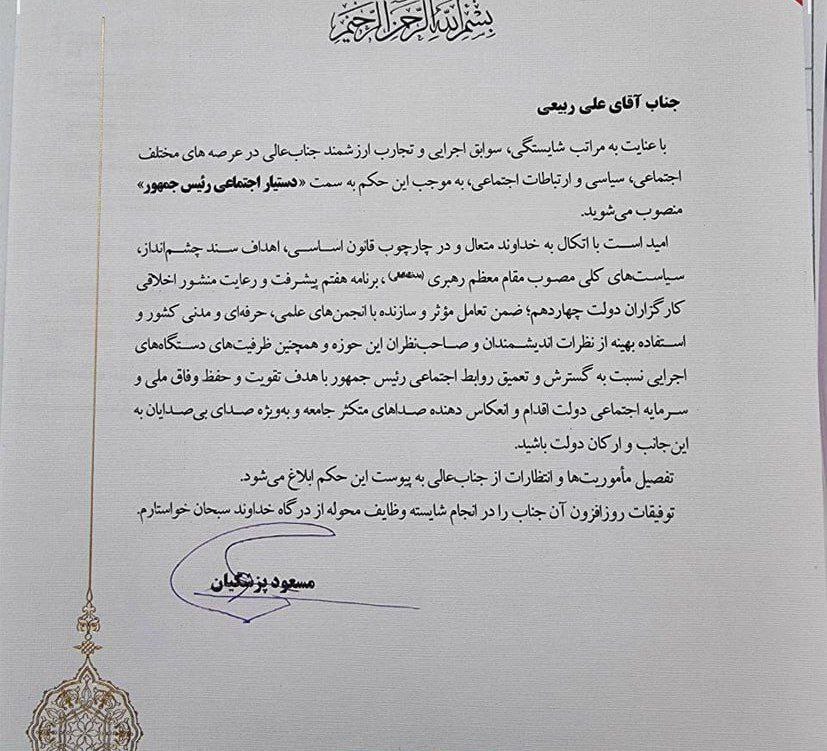 بسم الله الرحمن الرحیم
جناب آقای علی ربیعی
با عنایت به مراتب شایستگی، سوابق اجرایی و تجارب ارزشمند جناب‌عالی در عرصه های مختلف
اجتماعی، سیاسی و ارتباطات اجتماعی، به موجب این حکم به سمت «دستیار اجتماعی رئیس جمهور»
منصوب می‌شوید.
امید است با اتکال به خداوند متعال و در چارچوب قانون اساسی، اهداف سند چشم‌انداز،
سیاست‌های کلی مصوب مقام معظم رهبری (مدظله‌العالی)، برنامه هفتم پیشرفت و رعایت منشور اخلاقی
کارگزاران دولت چهاردهم؛ ضمن تعامل مؤثر و سازنده با انجمن‌های علمی، حرفه‌ای و مدنی کشور و
استفاده بهینه از نظرات اندیشمندان و صاحب‌نظران این حوزه و همچنین ظرفیت‌های دستگاه‌های
اجرایی نسبت به گسترش و تعمیق روابط اجتماعی رئیس جمهور با هدف تقویت و حفظ وفاق ملی و
سرمایه اجتماعی دولت اقدام و انعکاس دهنده صداهای متکثر جامعه و به‌ویژه صدای بی‌صدایان به
این‌جانب و ارکان دولت باشید.
تفصیل مأموریت‌ها و انتظارات از جناب‌عالی به پیوست این حکم ابلاغ می‌شود.
توفیقات روزافزون آن جناب را در انجام شایسته وظایف محوله از درگاه خداوند سبحان خواستارم.
مسعود پزشکیان